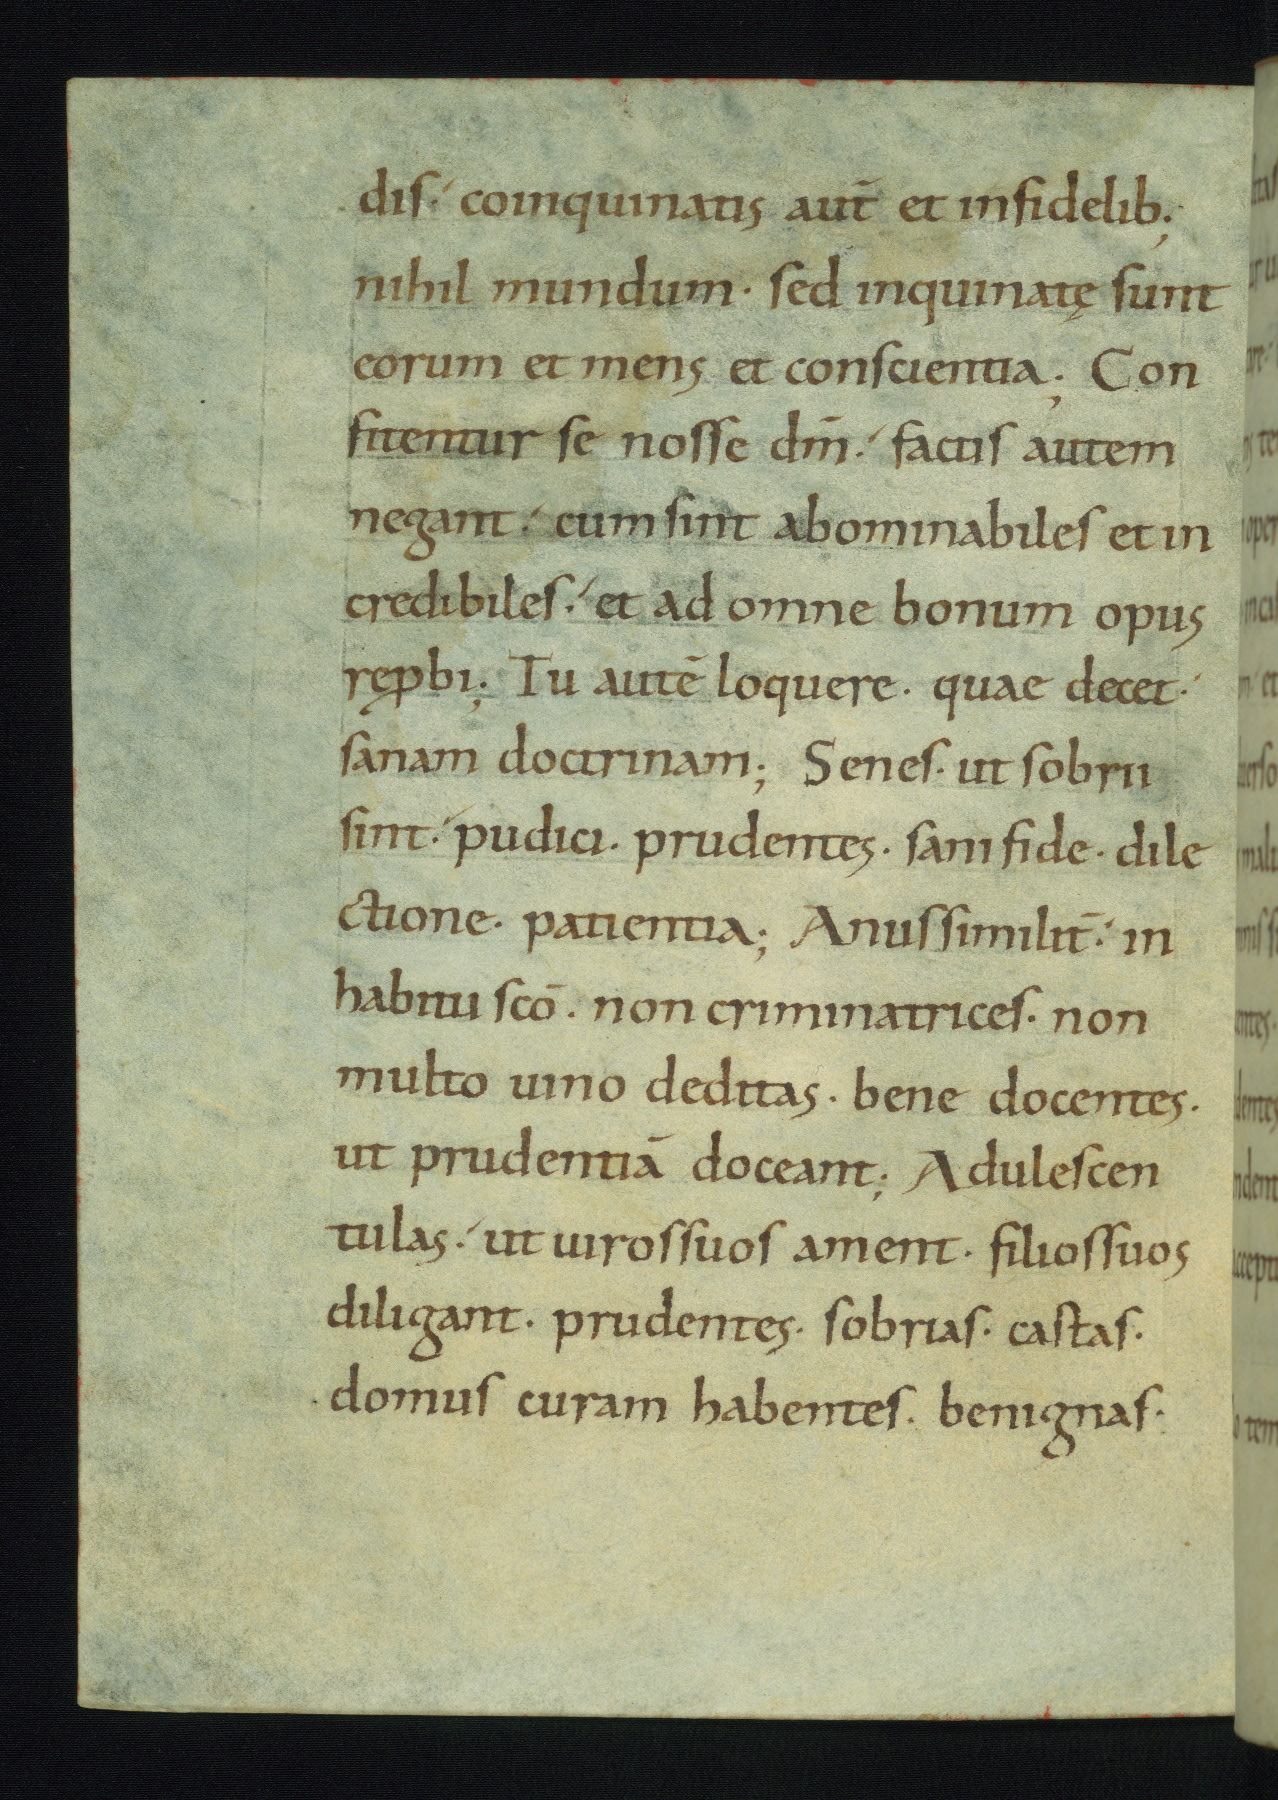 dis; coinquinatis aut̄ et infidelib;
nihil mundum · sed inquinatę sunt
eorum et mens et conscientia; Con
fitentur se nosse dm̄ · factis autem
negant · cum sint abominabiles et in
credibiles · et ad omne bonum opus
ręꝓbi; Tu autē loquere · quae decet ·
sanam doctrinam; Senes · ut sobrii
sint · pudici · prudentes · sani fide · dile
ctione · patientia; Anus similit̄ · in
habitu scō · non criminatrices · non
multo uino deditas · bene docentes ·
ut prudentiā doceant; Adulescen
tulas · ut uiros suos ament · filios suos
diligant · prudentes · sobrias · castas ·
domus curam habentes · benignas ·